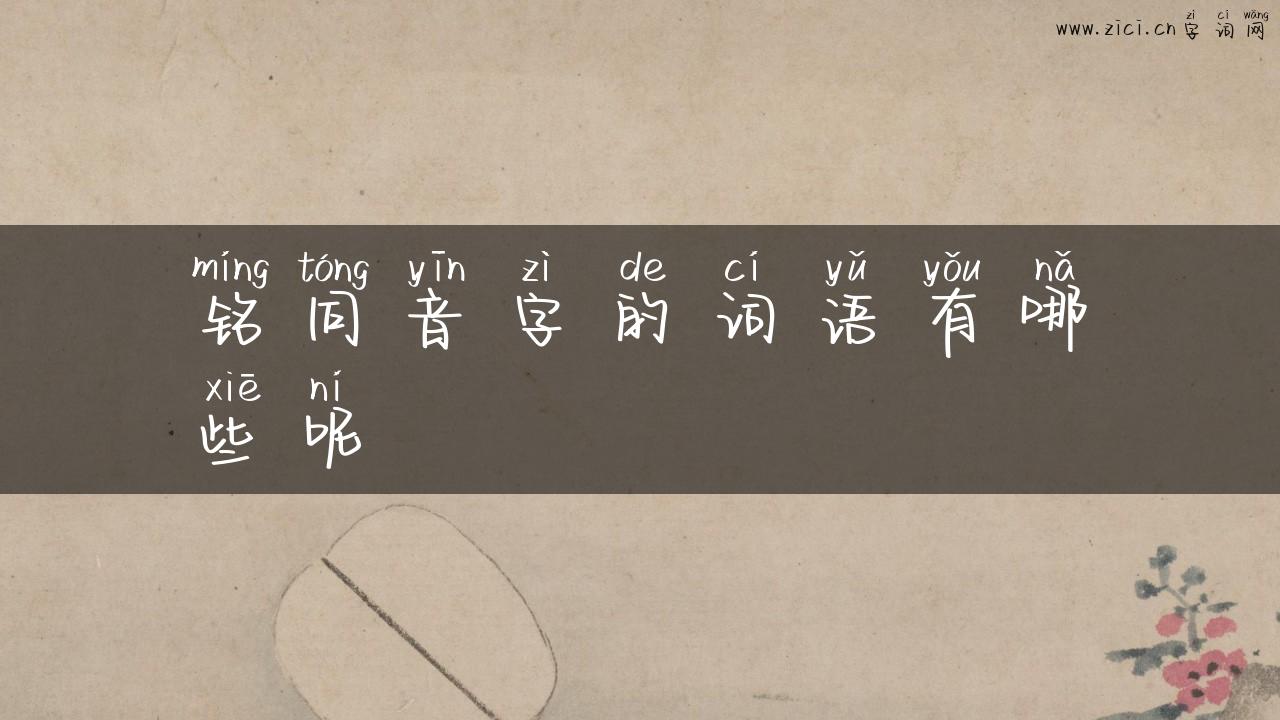 zì cí wǎng
www.zici.cn字词网
míng tóng yīn zì de cí yǔ yǒu nǎ
铭同音字的词语有哪
xiē ní
些呢